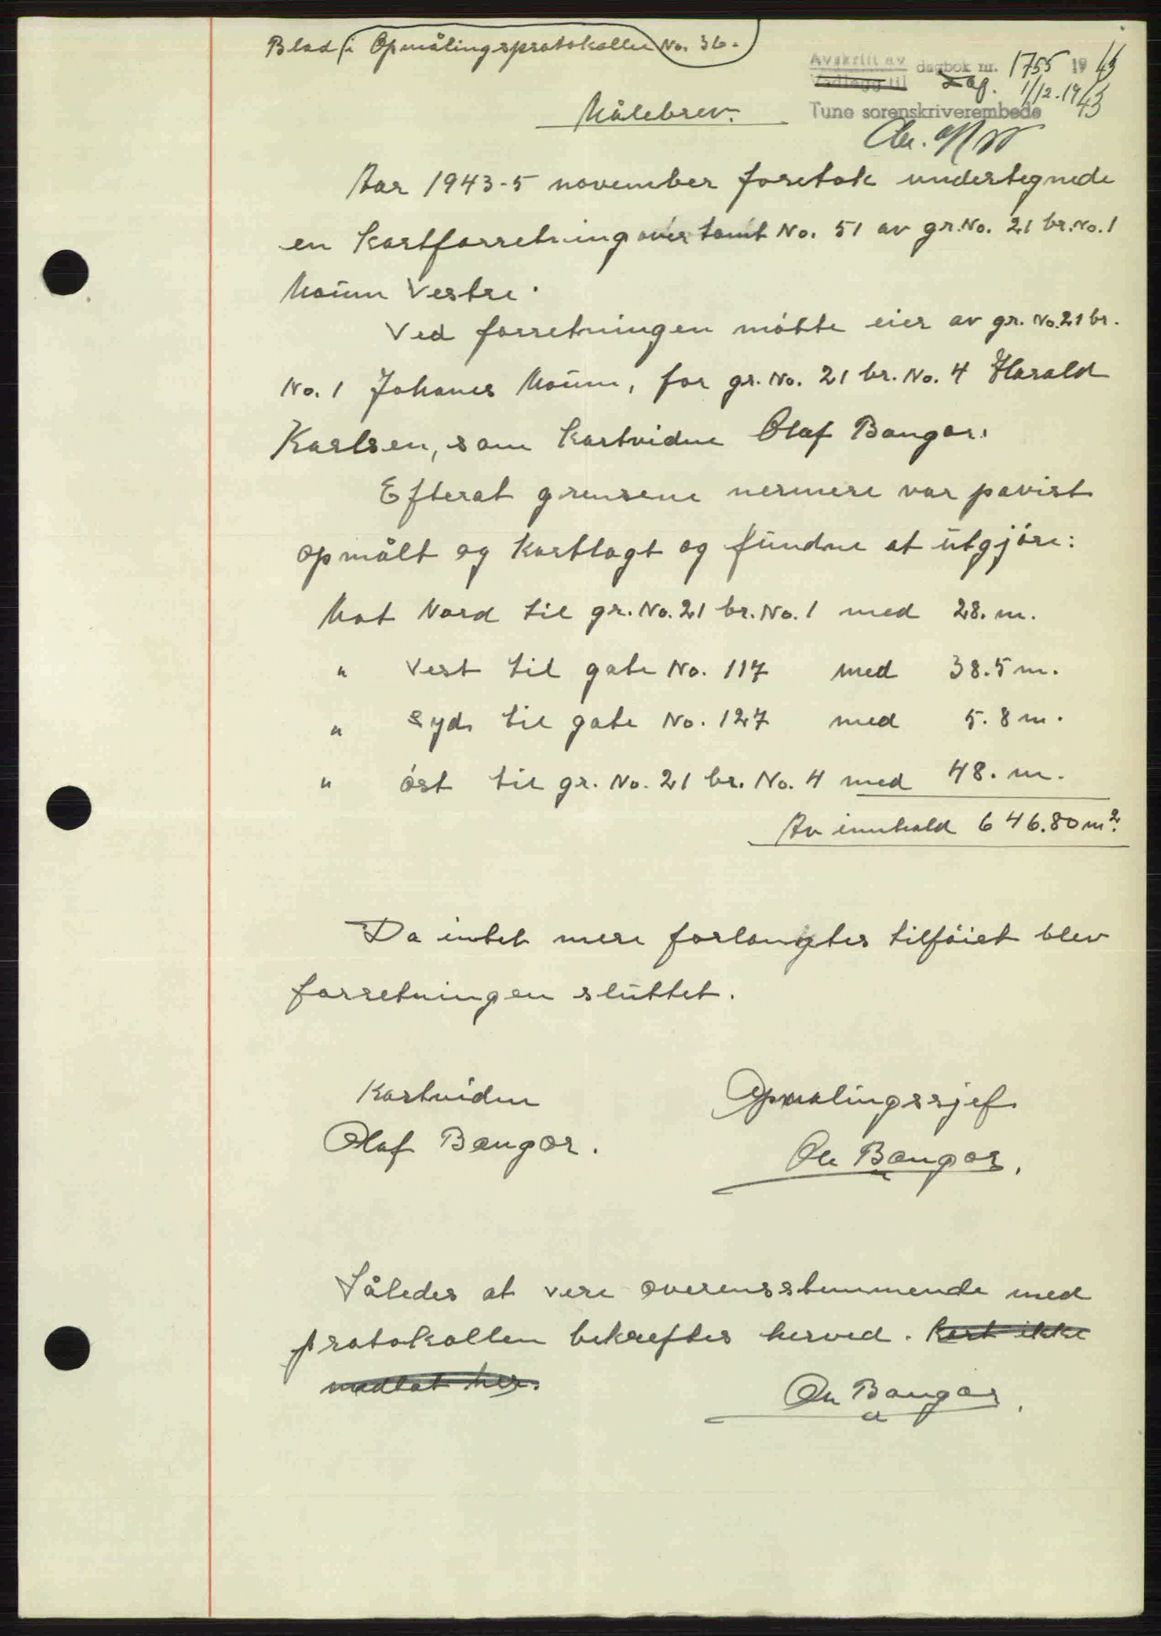 Blad i Opmålingsprotokollen No. 36.
Avskrift av dagbok nr. 1755 1943
Vedlegg til Dag. 1/12.1943
Tune sorenskriverembede
Målebrev.
Aar 1943-5 november foretok undertegnede
en kartforretning over tomt No. 51 av gr.No. 21 br.No.1
Moum Vestre.
Ved forretningen møtte eier av gr.No.21 br.
No. 1 Johanes Moum, for gr.No. 21 br.No. 4 Harald
Karlsen, som kartvidne Olaf Bangor.
Efterat grensene nermere var pavist
opmålt og kartlagt og fundne at utgjøre:
Mot Nord til gr.No.21 br.No.1 med 28. m.
" Vest til gate No. 117 med 38.5 m.
" Syd til gate No. 127 med 5.8 m.
" øst til gr.No. 21 br. No. 4 med 48. m.
Av innhold 646.80 m².
Da intet mere forlangtes tilføiet blev
forretningen sluttet.
Kartvidne Opmalingssjef
Olaf Bangor. Ole Bangor.
Således at vere overensstemmende med
protokollen bekreftes herved. Kart ikke
medlat her.
Ole Bangor.